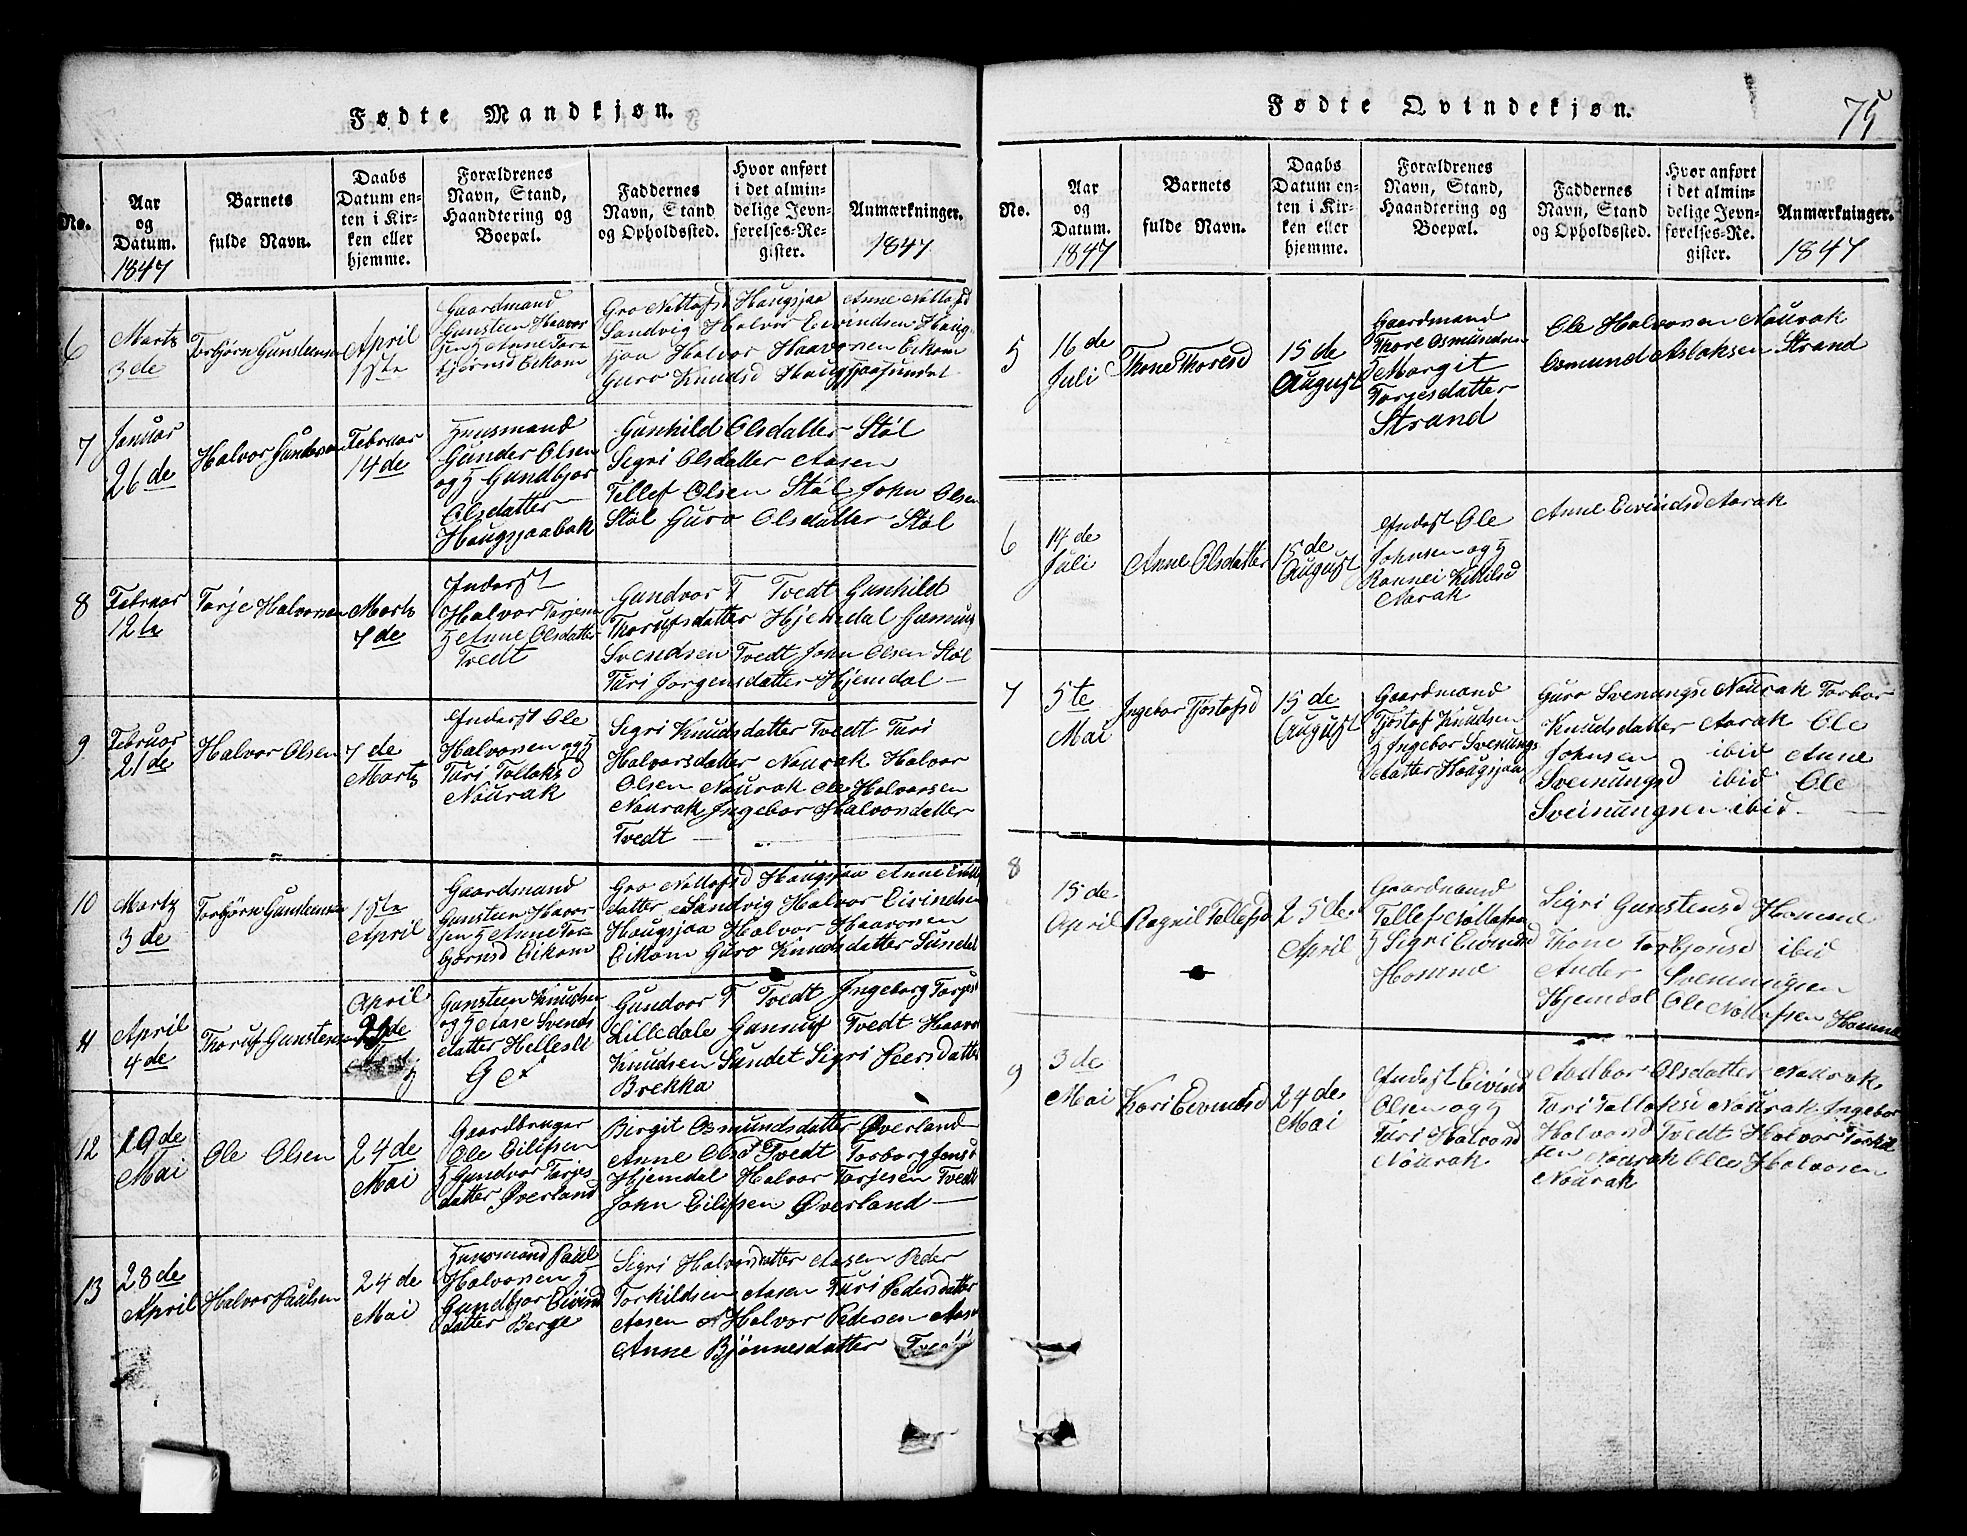 Fødte Mandkjøn.
No.
Aar
og
Datum.
1847
Barnets
fulde Navn.
Daabs
Datum en-
ten i Kir-
ken eller
hjemme.
Forældrenes
Navn, Stand,
Haandtering og
Boepæl.
Faddernes
Navn, Stand
og Opholdssted.
Hvor anført
i det almin-
delige Jevn-
førelses-Re-
gister.
Anmærkninger.
1847
6
Marts
3de
Torbjørn Gunsteensen
April
1ste
Gaardmand
Gunsteen Haavor
sen & Anne Tor-
bjørnsd Eikom
Gro Nottofsd Haugsjaa Anne Nottofsd
Sandvig Halvor Eivindsen Haug-
sjaa Halvor Haavorsen Eikom
Guro Knudsd Haugsjaasundet
7
Januar
26de
Halvor Gundersen
Februar
14de
Huusmand
Gunder Olsen
og H Gundbjor
Olsdatter
Haugsjaabak
Gunhild Olsdatter Støl
Sigri Olsdatter Aasen
Tellef Olsen Støl John Olsen
Støl Guro Olsdatter Støl
8
Februar
12te
Torje Halvorsen
Marts
7de
Inderst
Halvor Torjesen
H Anne Olsdatter
Tvedt
Gundvor T Tvedt Gunhild
Thorufsdatter Hjemdal
Svendsen Tvedt John Olsen Støl
Turi Jorgensdatter Hjemdal
9
Februar
21de
Halvor Olsen
7de
Marts
Inderst Ole
Halvorsen og H
Turi Tolloksd
Nourak
Sigri Knudsdatter Tvedt Turi
Halvorsdatter Nourak Halvor
Olsen Nourak Ole Halvorsen
Nourak Ingebor Halvorsdatter
Tvedt
10
Marts
3de
Torbjørn Gunsteensen
1ste
April
Gaardmand
Gunsteen Haavor
sen H Anne Tor-
bjørnsd Eikom
Gro Nottofsd Haugsjaa Anne
datter Sandvig Halvor Eivindsen
Haugsjaa Halvor Haavorsen
Eikom Guro Knudsdatter Sundet
11
April
4de
Thoruf Gunsteensen
April
Gunsteen Knudsen
og H Aase Svends
datter Hellesli
Gundvor T Tvedt Ingeborg Torjesd
Lilledale Tvedt Haavor
Knudsen Sundet Sigri Peersdatter
Brekka
12
19de
Mai
Ole Olsen
24de
Mai
Gaardbruger
Ole Eilifsen
H Gundvor Torjes
datter Øverland
Birgit Osmundsdatter Øverland
Anne Olsd Tvedt Torborg Jensd
Hjemdal Halvor Torjesen Tvedt
John Eilifsen Øverland
13
28de
April
Halvor Paulsen
24de
Mai
Huusmand Paul
Halvorsen H
Gundbjor Eivind
datter Berge
Sigri Halvorsdatter Aasen Peder
Torkildsen Aasen Turi Pedersdatter
Aasen Halvor Pedersen Aasen
Anne Bjønnesdatter Tvedt
Fødte Qvindekjøn.
75
No.
Aar
og
Datum.
1847
Barnets
fulde Navn.
Daabs
Datum en-
ten i Kir-
ken eller
hjemme.
Forældrenes
Navn, Stand,
Haandtering og
Boepæl.
Faddernes
Navn, Stand
og Opholdssted.
Hvor anført
i det almin-
delige Jevn-
førelses-Re-
gister.
Anmærkninger.
1847
5
16de
Juli
Thone Thoresd
15de
August
Gaardmand
Thore Osmundsen
H Margit
Torjesdatter
Strand
Ole Halvorsen Nourak
Osmund Aslaksen Strand
6
14de
Juli
Anne Olsdatter
15de
August
Inderst Ole
Johnsen og H
Rannei Kittilsd
Aarak
Anne Eivindsd Aarak
7
5te
Mai
Ingebor Tjostofsd
15de
August
Gaardmand
Tjostof Knudsen
H Ingebor Svenungs
datter Haugsjaa
Guro Svenungsd Nourak Torbor
Knudsdatter Aarak Ole
Johnsen ibid Anne
Sveinungsd ibid Ole
Sveinungsen ibid
8
15de
April
Ragnil Tellefsd
25de
April
Gaardmand
Tellef Nottofsen
H Sigri Eivindsd
Homme
Sigri Gunstensd Homme
Thone Torbjonsd ibid
Ander Svenningsen
Hjemdal Ole Nottofsen Homme
9
3de
Mai
Kari Eivindsd
24de
Mai
Inderst Eivind
Olsen og H
Turi Halvorsd
Nourak
Aadbor Olsdatter Nourak
Turi Tolloksd Nourak Ingebor
Halvorsd Tvedt Halvor Torkild
sen Nourak Ole Halvorsen
Nourak